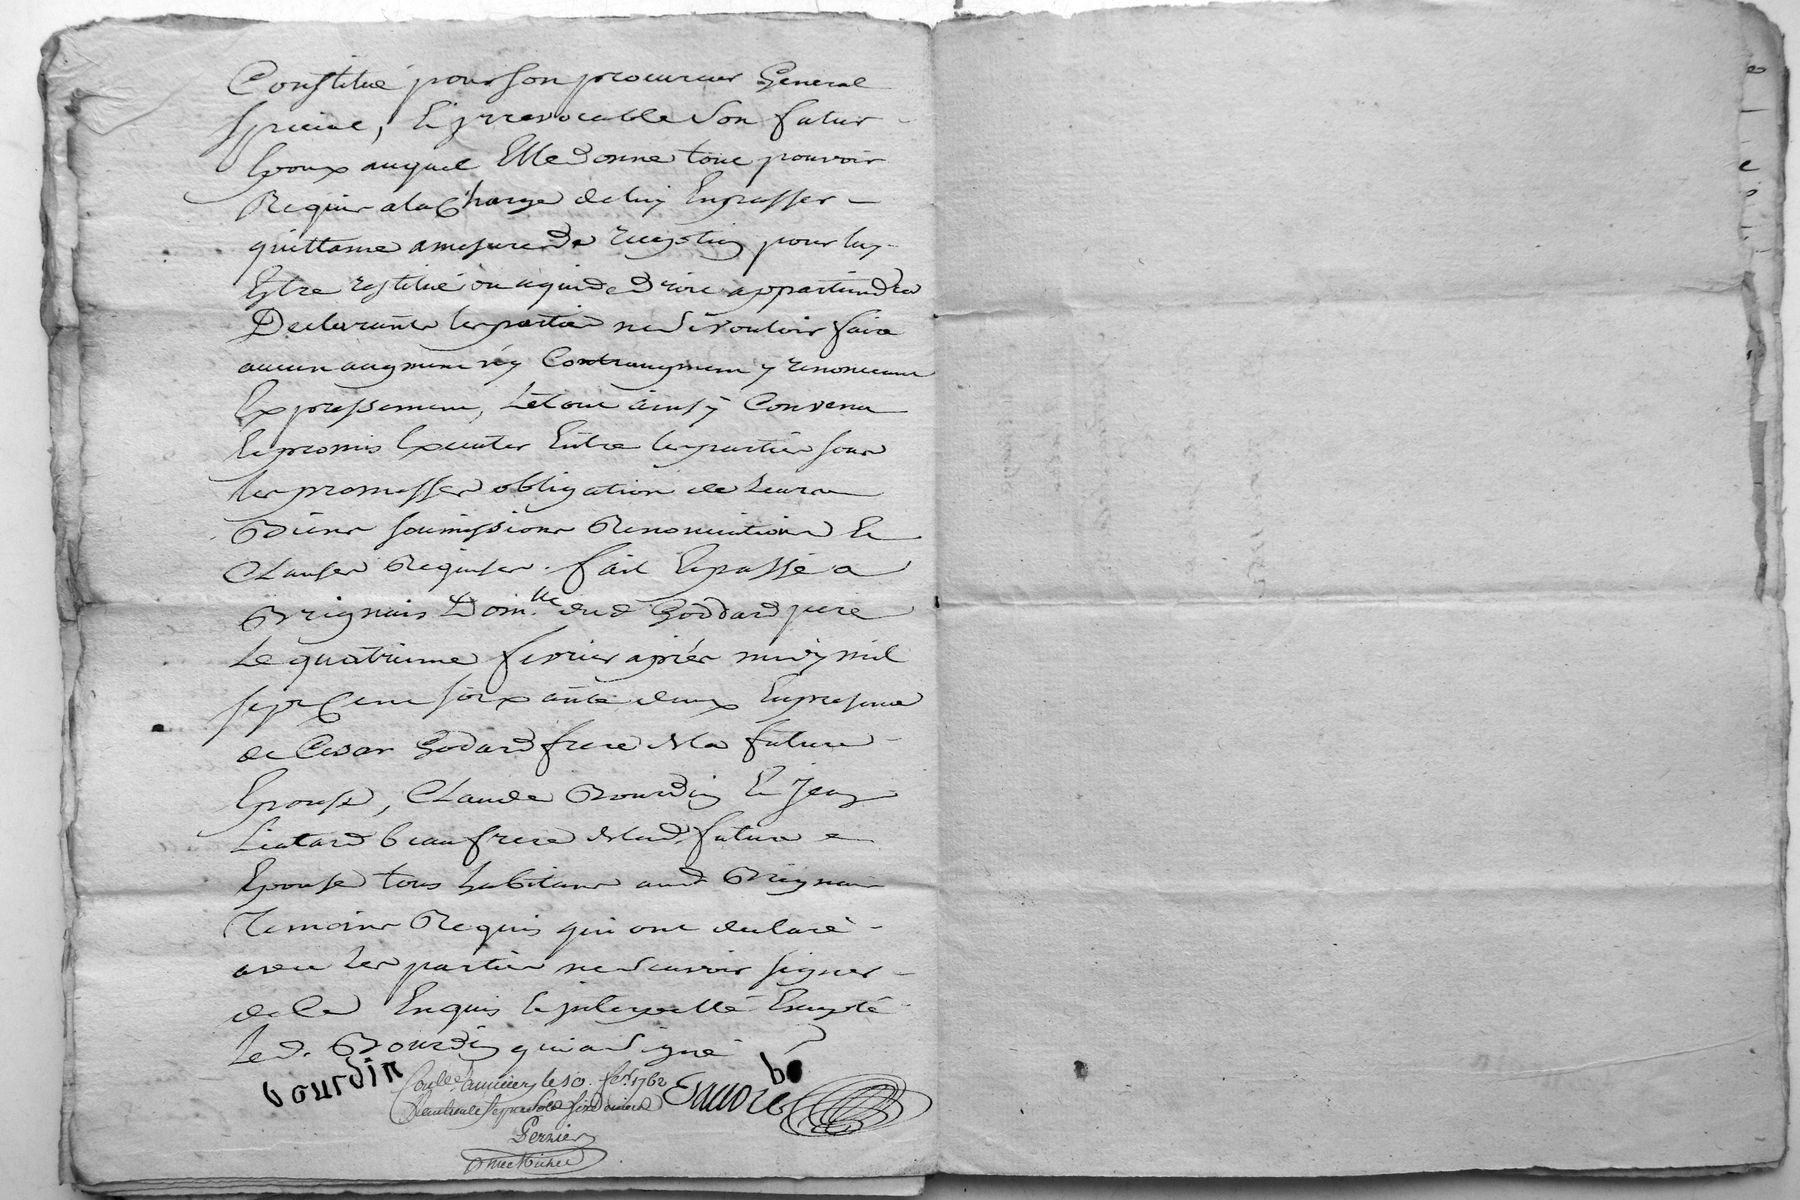 Constitué pour son procureur General
special, et jrrevocable son futur
Epoux auquel Elle donne tout pouvoir
Requis ala Charge de luy En passer
quittance amesure de reception pour luy
Estre restitué ou aqui de droit appartiendra
Declarants les parties ne vouloir faire
aucun augment ny Contraugment y renonceant
Expressement, Letout ainsy Convenu
Et promis Executer Entre les parties sous
les promesses obligation de Leurs
Biens soumissions Renonciations Et
Clauses Requises. fait Et passé a
Brignais Dom.lle dud Goddard pere
Le quatrieme fevrier aprés midy mil
sept Cent soixante deux En presence
de Cesar Godard frere de la future
Epouse, Claude Bourdin Et Jean
Liatard beaufrere de lad. future
Epouse tous habitans aud Brignais
Temoins Requis qui ont declaré
avec les parties ne scavoir signer
de Ce Enquis Et jnterpellé Excepté
Led. Bourdin qui a signé
bourdin
le 10 fev. 1762